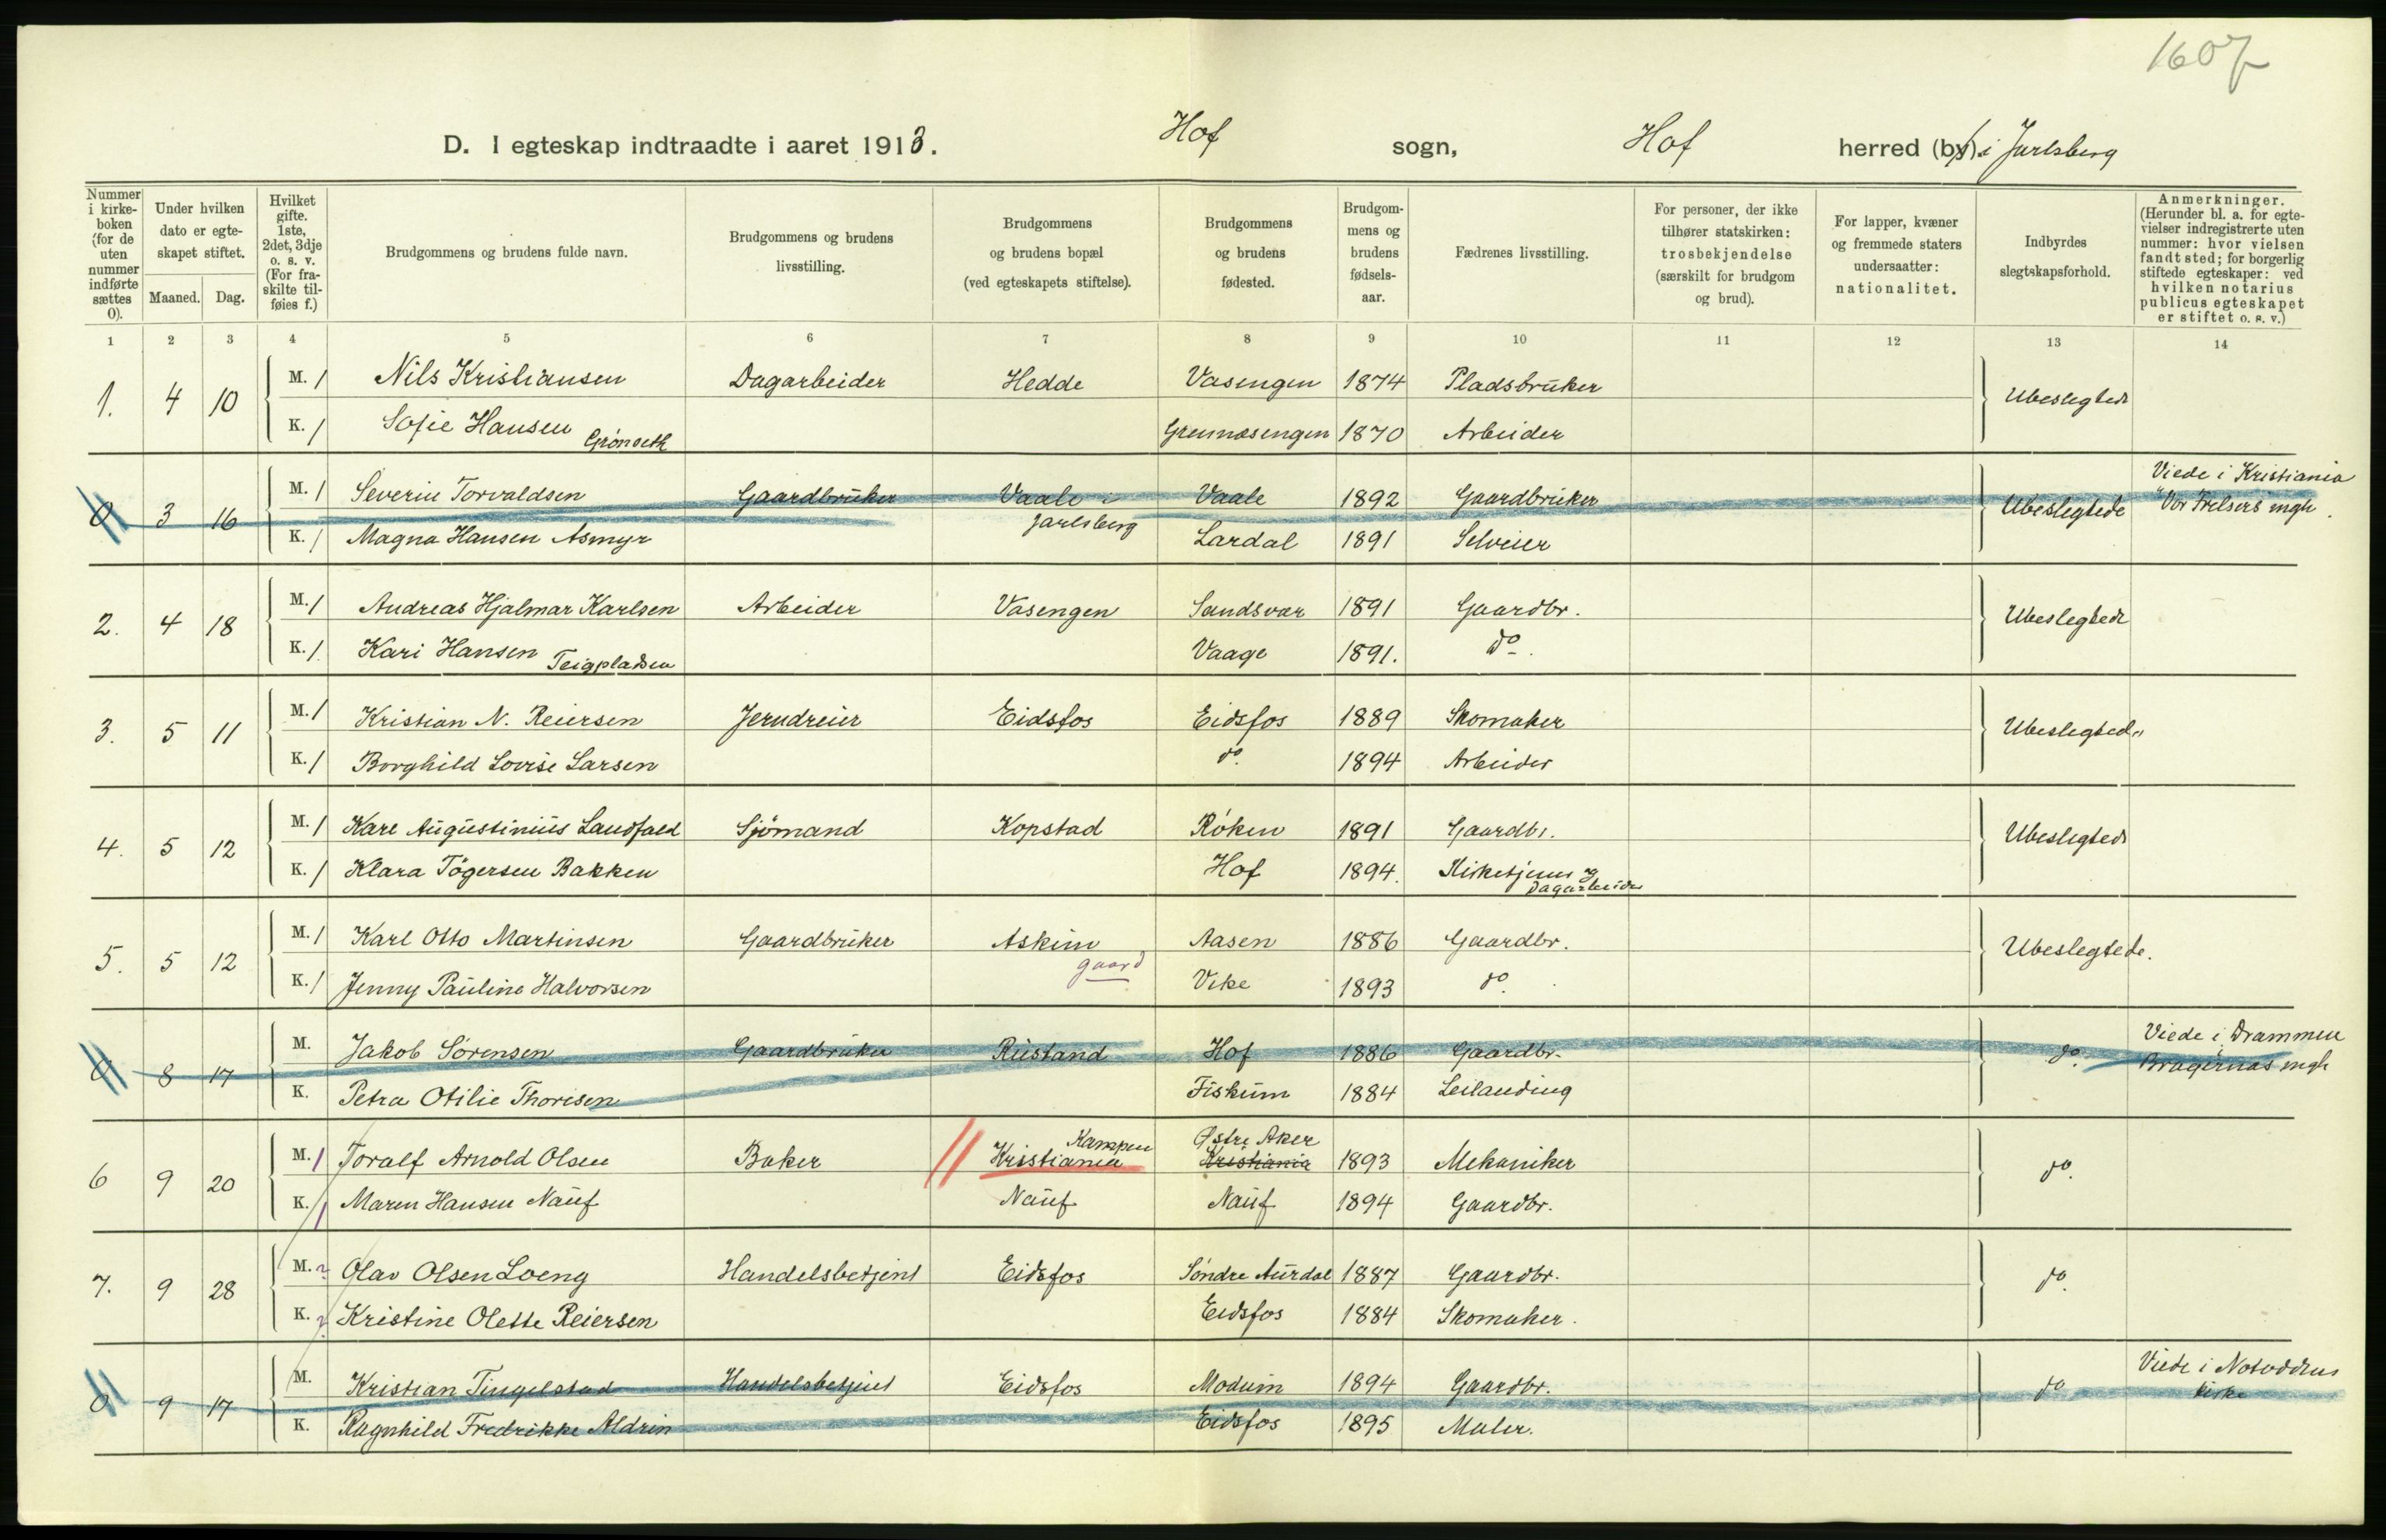 1607
D. I egteskap indtraadte i aaret 1913. Hof sogn, Hof herred (by) i Jarlsberg
Nummer i kirkeboken (for de uten nummer indførte sættes 0).
Under hvilken dato er egteskapet stiftet.
Maaned. Dag.
Hvilket gifte. 1ste, 2det, 3dje o. s. v. (For fraskilte tilføies f.)
Brudgommens og brudens fulde navn.
Brudgommens og brudens livsstilling.
Brudgommens og brudens bopæl (ved egteskapets stiftelse).
Brudgommens og brudens fødested.
Brudgommens og brudens fødselsaar.
Fædrenes livsstilling.
For personer, der ikke tilhører statskirken: trosbekjendelse (særskilt for brudgom og brud).
For lapper, kvæner og fremmede staters undersaatter: nationalitet.
Indbyrdes slegtskapsforhold.
Anmerkninger. (Herunder bl. a. for egtevielser indregistrerte uten nummer: hvor vielsen fandt sted; for borgerlig stiftede egteskaper: ved hvilken notarius publicus egteskapet er stiftet o. s. v.)
1 2 3 4 5 6 7 8 9 10 11 12 13 14
1. 4 10 M. 1 Nils Kristiansen Dagarbeider Hedde Vasengen 1874 Pladsbruker Ubeslegtede
K. 1 Sofie Hansen Grønseth 1870 Arbeider
0 3 16 M. 1 Severin Torvaldsen Gaardbruker Vaale i Jarlsberg Vaale 1892 Gaardbruker Ubeslegtede Viede i Kristiania Vor Frelsers mgh.
K. 1 Magna Hansen Asmyr Lardal 1891 Selveier
2. 4 18 M. 1 Andreas Hjalmar Karlsen Arbeider Vasengen Sandsvær 1891 Gaardbr. Ubeslegtede
K. 1. Kari Hansen Teigpladsen Vaage 1891. do.
3. 5 11 M. 1 Kristian N. Reiersen Jerndreier Eidsfos Eidsfos 1889 Skomaker Ubeslegtede
K. 1 Borghild Lovise Larsen do. 1894 Arbeider
4. 5 12 M. 1 Karl Augustinius Landfald Sjömand Kopstad Röken 1891 Gaardbr. Ubeslegtede
K. 1 Klara Tögersen Bakken Hof 1894. Kirketjener og Dagarbeider
5. 5 12 M. 1 Karl Otto Martinsen Gaardbruker Askim gaard Aasen 1886 Gaardbr. Ubeslegtede.
K. 1 Jenny Pauline Halvorsen Vike 1893 do.
0 8 17 M. Jakob Sörensen Gaardbruker Rustand Hof 1886 Gaardbr. do. Viede i Drammen Bragernæs mgh
K. Petra Otilie Thorisen Fiskum 1884 Leilending
6 9 20 M. 1 Toralf Arnold Olsen Baker Kristiania Kampen Østre Aker Kristiania 1893 Mekaniker do.
K. 1 Maren Hansen Nauf Nauf Nauf 1894 Gaardbr.
7. 9 28 M. ? Olav Olsen Loeng Handelsbetjent Eidsfos Söndre Aurdal 1887 Gaardbr. do.
K. ? Kristine Olette Reiersen Eidsfos 1884 Skomaker.
0 9 17 M. Kristian Tingelstad Handelsbetjent Eidsfos Modum 1894 Gaardbr. do Viede i Notoddens kirke
K. Ragnhild Fredrikke Aldrin Eidsfos 1895 Maler.